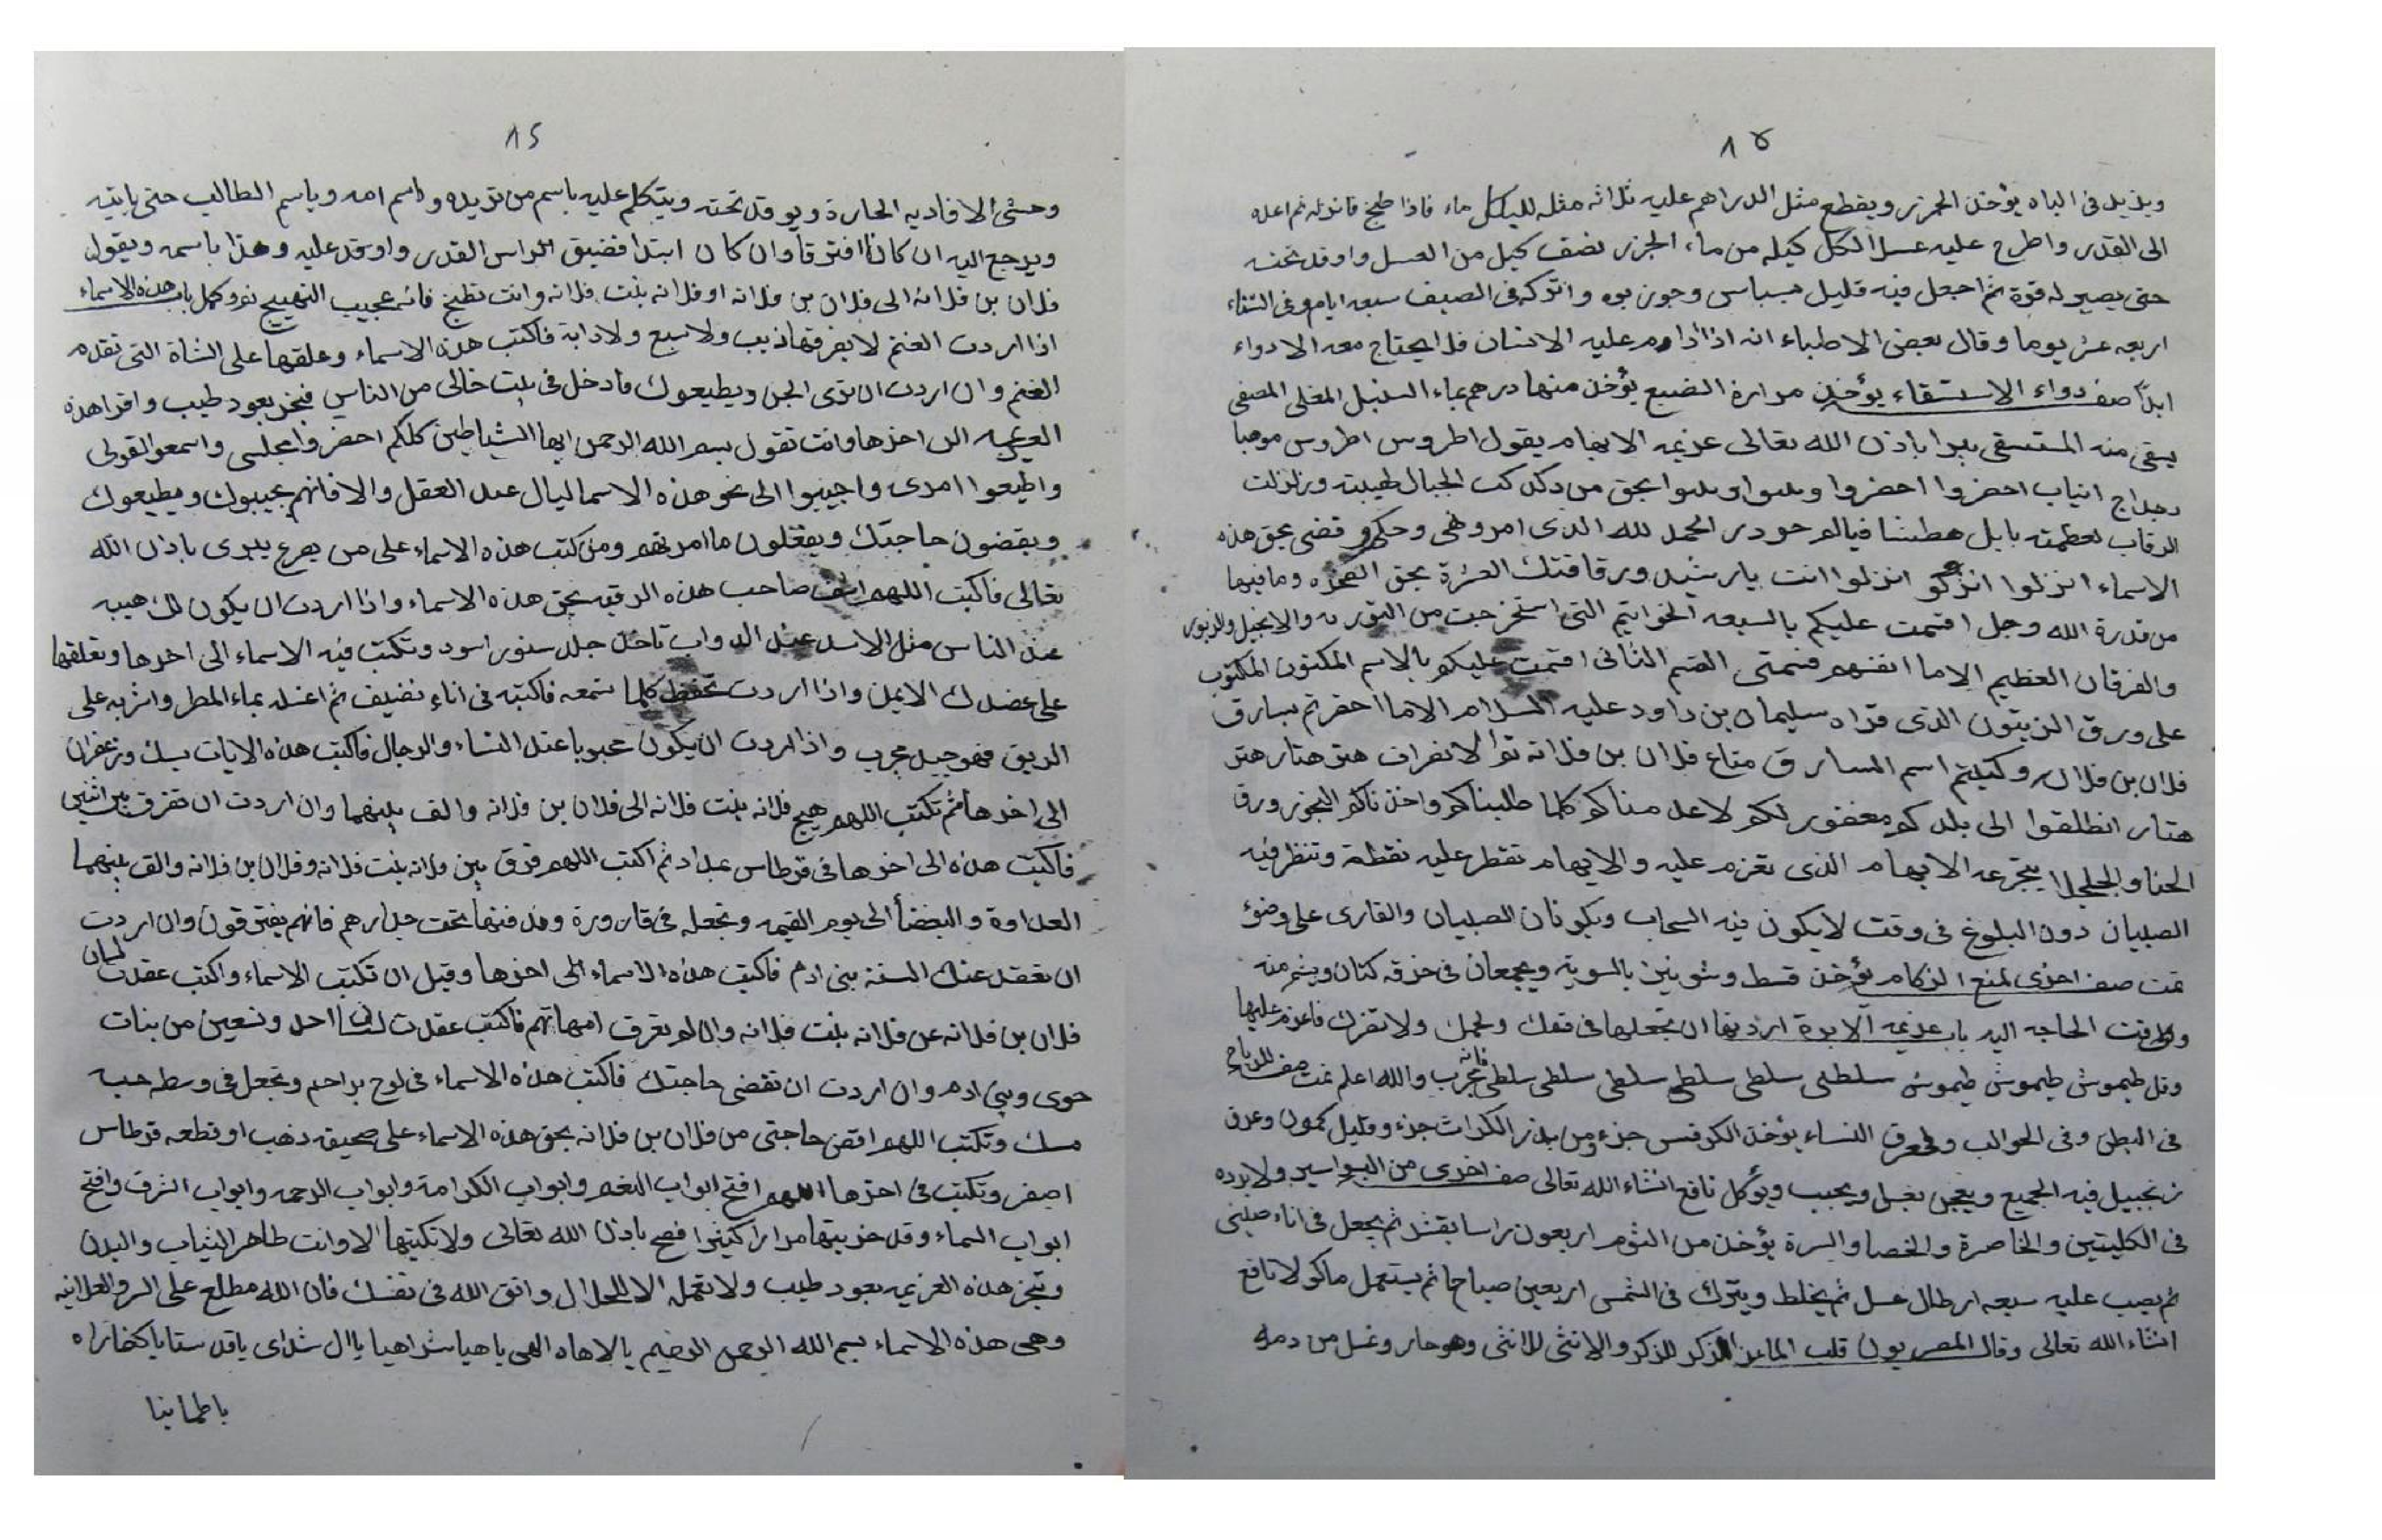 ١٥
ويزيد في الباه يؤخذ الجزر ويقطع مثل الدراهم عليه ثلاثه مثله للكيل ماء فاذا طبخ فانزله ثم اعده
الى القدر واطرح عليه عسل الكل كيله من ماء الجزر نصف كيل من العسل واوقد تحته
حتى يصير له قوة ثم اجعل فيه قليل بسباس وجوز بوه واتركه في الصيف سبعه ايام وفي الشتاء
اربعه عشر يوما وقال بعض الاطباء انه اذا داوم عليه الانسان فلا يحتاج معه الادواء
ابدًا صفه دواء الاستسقاء يؤخذ مرارة الضبع يؤخذ منها درهم بماء السنبل المغلى المصفى
يسقى منه المستسقى يبرا باذن الله تعالى عزيمه الابهام يقول اطروس اطروس موحيا
انياب احضروا احضروا بحق من دكدكت الجبال لهيبته وزلزلت
الرقاب لعظمته بابل هطشا الحمد لله الذى امر ونهى وحكم وقضى بحق هذه
الاسماء انزلوا انزلو انزلوا انت يا رشيد ورقاقتك العشرة بحق الصخره وما فيها
من قدرة الله وجل اقسمت عليكم بالسبعه الخواتيم التى استخرجت من التوريه والانجيل والزبور
والفرقان العظيم الاما القسم الثانى اقسمت عليكو بالاسم المكنون المكتوب
على ورق الزيتون الذى قراه سليمان بن داود عليه السلام الاما احضرتم بسارق
فلان بن فلان وكتبتم اسم السارق متاع فلان بن فلانه توا الانفراف هتر هتار هتر
هتار انطلقوا الى بلدكو مغفور لكو لاعدمناكو كلما طلبناكو واخذناكو البخور ورق
الحنا يتجرعه الابهام الذى تعزم عليه والابهام تقطر عليه نقطة وتنظر فيه
الصبيان دون البلوغ في وقت لا يكون فيه السحاب ويكونان الصبيان والقارى على وضوء
تمت صفه اخرى لمنع الزكام يؤخذ قسط وشونيز بالسوية ويجمعان في خرقه كتان ويشم منه
وقت الحاجه اليه باب عزيمه الابرة اردت ان تجعلها في فمك ولحمك ولا تضرك فاعزم عليها
وقل طيموش طيموش طيموش سلطى سلطى سلطى سلطى سلطى فانه مجرب والله اعلم تمت صفه للرياح
في البطن وفى الحوالب وفى عرق النساء يؤخذ الكرفس جزء ومن بذر الكراث جزء وقليل كمون وعرق
زنجبيل فيه الجميع ويعجن بعسل ويحبب ويؤكل نافع انشاء الله تعالى صفه اخرى من البواسير ولابرده
في الكليتين والخاصرة والخصا والسرة يؤخذ من الثوم اربعون راسا بقشره ثم يجعل في اناء صينى
ثم يصب عليه سبعه ارطال عسل ثم يخلط ويترك في الشمس اربعين صباحا ثم يستعمل ماكولا نافع
انشاء الله تعالى وقال المصريون قلب الذكر للذكر والانثى للانثى وهو حار وغسل من دمه
١٤
وحشى الافاديه الحارة ويوقد تحته ويتكلم عليه باسم من تريده واسم امه وباسم الطالب حتى ياتيه
ويرجع اليه ان كانا افترقا وان كان ابتدا فضيق الراس القدر واوقد عليه وهذا باسمه ويقول
فلان بن فلانه الى فلان بن فلانه او فلانه بنت فلانه وانت تطبخ فانه عجيب التهييج باب هذه الاسماء
اذا اردت الغنم لا يضرها ذيب ولا سبع ولا دابة فاكتب هذه الاسماء وعلقها على الشاة التى تقدم
الغنم وان اردت ان ترى الجن ويطيعوك فادخل في بيت خالى من الناس فبخر بعود طيب واقرا هذه
العزيمه الى اخرها وانت تقول بسم الله الرحمن ايها الشياطين كلكم احضروا مجلسى واسمعوا لقولى
واطيعوا امرى واجيبوا الى نحو هذه الاسما ليال عبد العقل والا فانهم يجيبوك ويطيعوك
ويقضون حاجتك ويفعلون ما امرتهم ومن كتب هذه الاسماء على من يصرع يبرى باذن الله
تعالى فاكتب اللهم اشف صاحب هذه الرقيه بحق هذه الاسماء واذا اردت ان يكون لك هيبه
عند الناس مثل الاسد عند الدواب تاخذ جلد سنور اسود وتكتب فيه الاسماء الى اخرها وتعلقها
على عضدك الايمن واذا اردت تحفظ كلما تسمعه فاكتبه في اناء نضيف ثم اغسله بماء المطر واشربه على
الريق فهو جيد مجرب واذا اردت ان يكون محبوبا عند النساء والرجال فاكتب هذه الايات بمسك وزعفران
الى اخرها ثم تكتب اللهم هيج فلانه بنت فلانه الى فلان بن فلانه والف بينهما وان اردت ان تفرق بين اثنين
فاكتب هذه الى اخرها في قرطاس بمداد ثم اكتب اللهم فرق بين فلانه بنت فلانه وفلان بن فلانه والق بينهما
العداوة والبغضأ الى يوم القيمه وتجعله في قارورة وتدفنها تحت جدارهم فانهم يفترقون وان اردت
ان تعقد عنك السنة بنى ادم فاكتب هذه الاسماء الى اخرها وقبل ان تكتب الاسماء واكتب عقدت لسان
فلان بن فلانه عن فلانه بنت فلانه وان لم تعرف امهاتهم فاكتب عقدت لسان احد وتسعين من بنات
حوى وبنى ادم وان اردت ان تقضى حاجتك فاكتب هذه الاسماء في لوح وتجعل في وسطه حبه
مسك وتكتب اللهم اقض حاجتى من فلان بن فلانه بحق هذه الاسماء على صحيفه ذهب او قطعه قرطاس
اصفر وتكتب في اخرها اللهم افتح ابواب النعم وابواب الكرامة وابواب الرحمه وابواب الشرف وافتح
ابواب السماء وقد جربتها مرارا كثيرا فصح باذن الله تعالى ولا تكتبها الا وانت طاهر الثياب والبدن
وتبخر هذه العزيمه بعود طيب ولا تعمله الا للحلال واتق الله في نفسك فان الله مطلع على السر والعلانيه
وهى هذه الاسماء بسم الله الرحمن الرحيم يا لاهاه الهى يا هيا شراهيا
باطمابنا